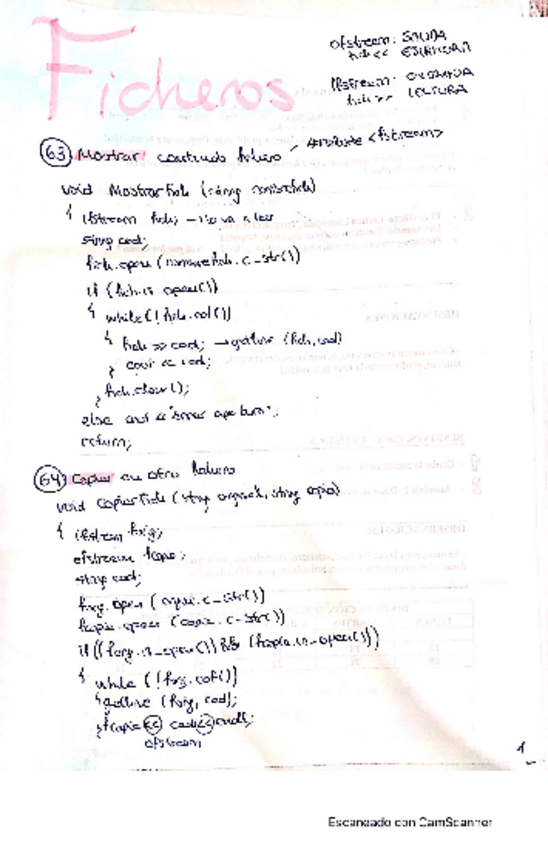 Ficheros
ofstream: SALIDA
fich << ESCRITURA
ifstream: ENTRADA
fich >> LECTURA
63) Mostrar contenido fichero, #include <fstream>
void Mostrarfich (string nombrefich)
{ ifstream fich; → lo va a leer
string cad;
fich.open (nombrefich.c_str())
if (fich.is_open())
{ while (!fich.eof())
{ fich >> cad; → getline (fich, cad)
} cout << cad;
} fich.close();
else cout << "error apertura";
return;
64) Copiar en otro fichero
void copiarfich (string original, string copia)
{ ifstream forig;
ofstream fcopia;
string cad;
forig.open ( .c_str())
fcopia.open (copia.c_str())
if ((forig.is_open()) && (fcopia.is_open()))
{ while (!forig.eof())
{ getline (forig, cad);
} fcopia << cad << endl;
ofstream
1
Escaneado con CamScanner